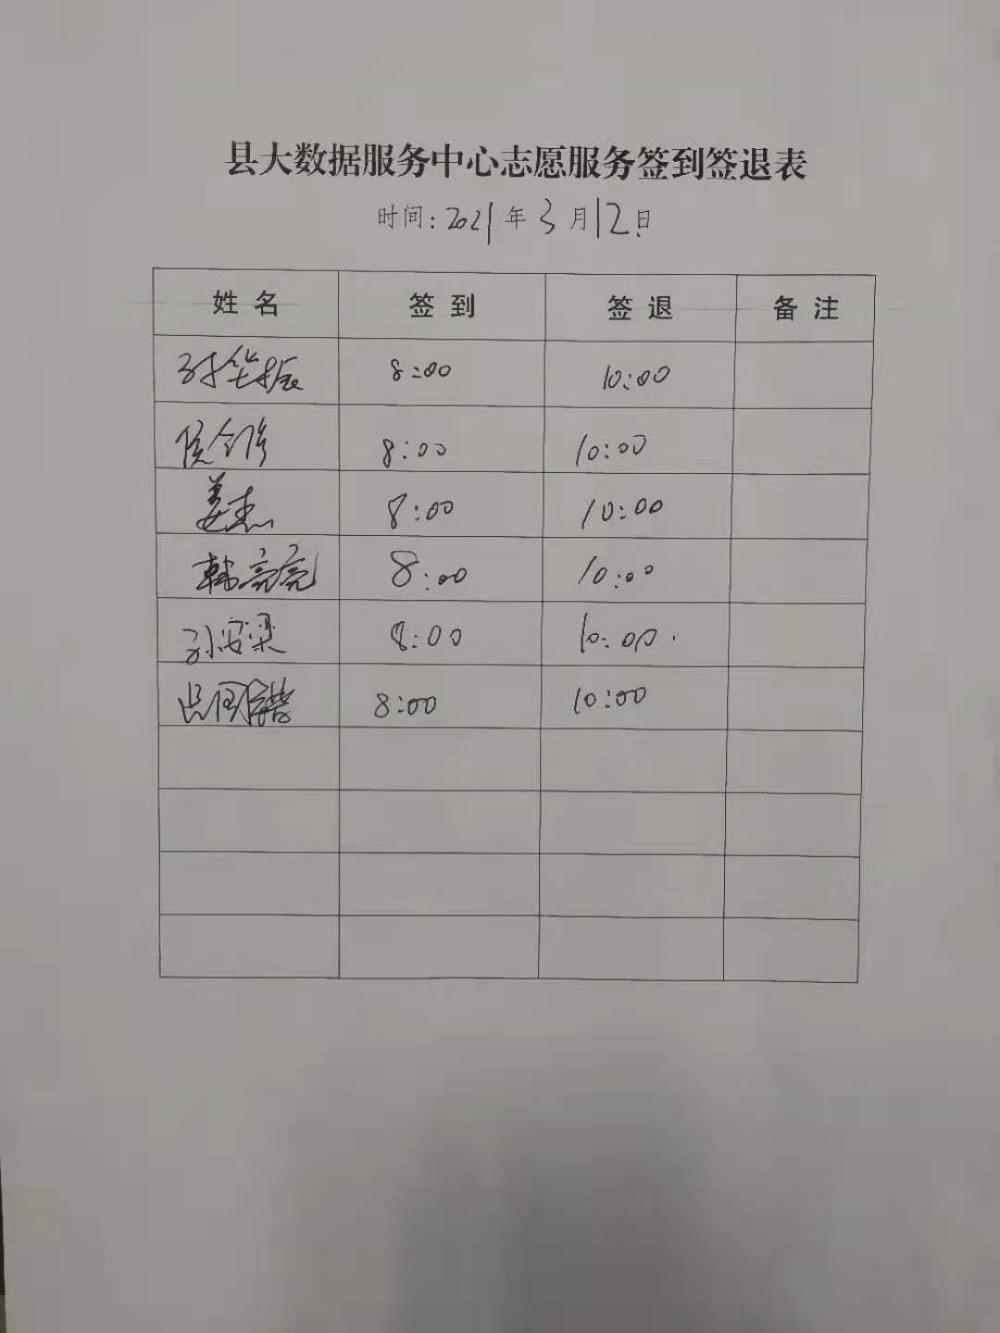 县大数据服务中心志愿服务签到签退表
时间:2021年3月12日
姓名 签到 签退 备注
8:00 10:00
8:00 10:00
姜杰 8:00 10:00
韩亮亮 8:00 10:00
孙安梁 8:00 10:00
8:00 10:00